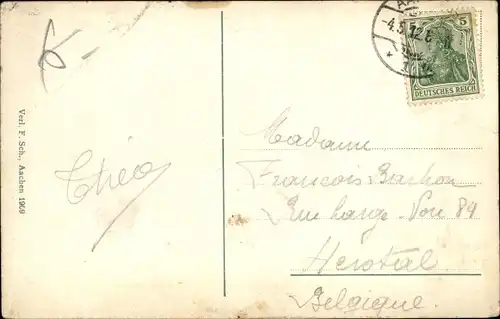 Verl. F. Sch., Aachen 1909
Théo
-4.5.12.6
5
DEUTSCHES REICH
Madame
François
Rue large-Voie 84
Herstal
Belgique.